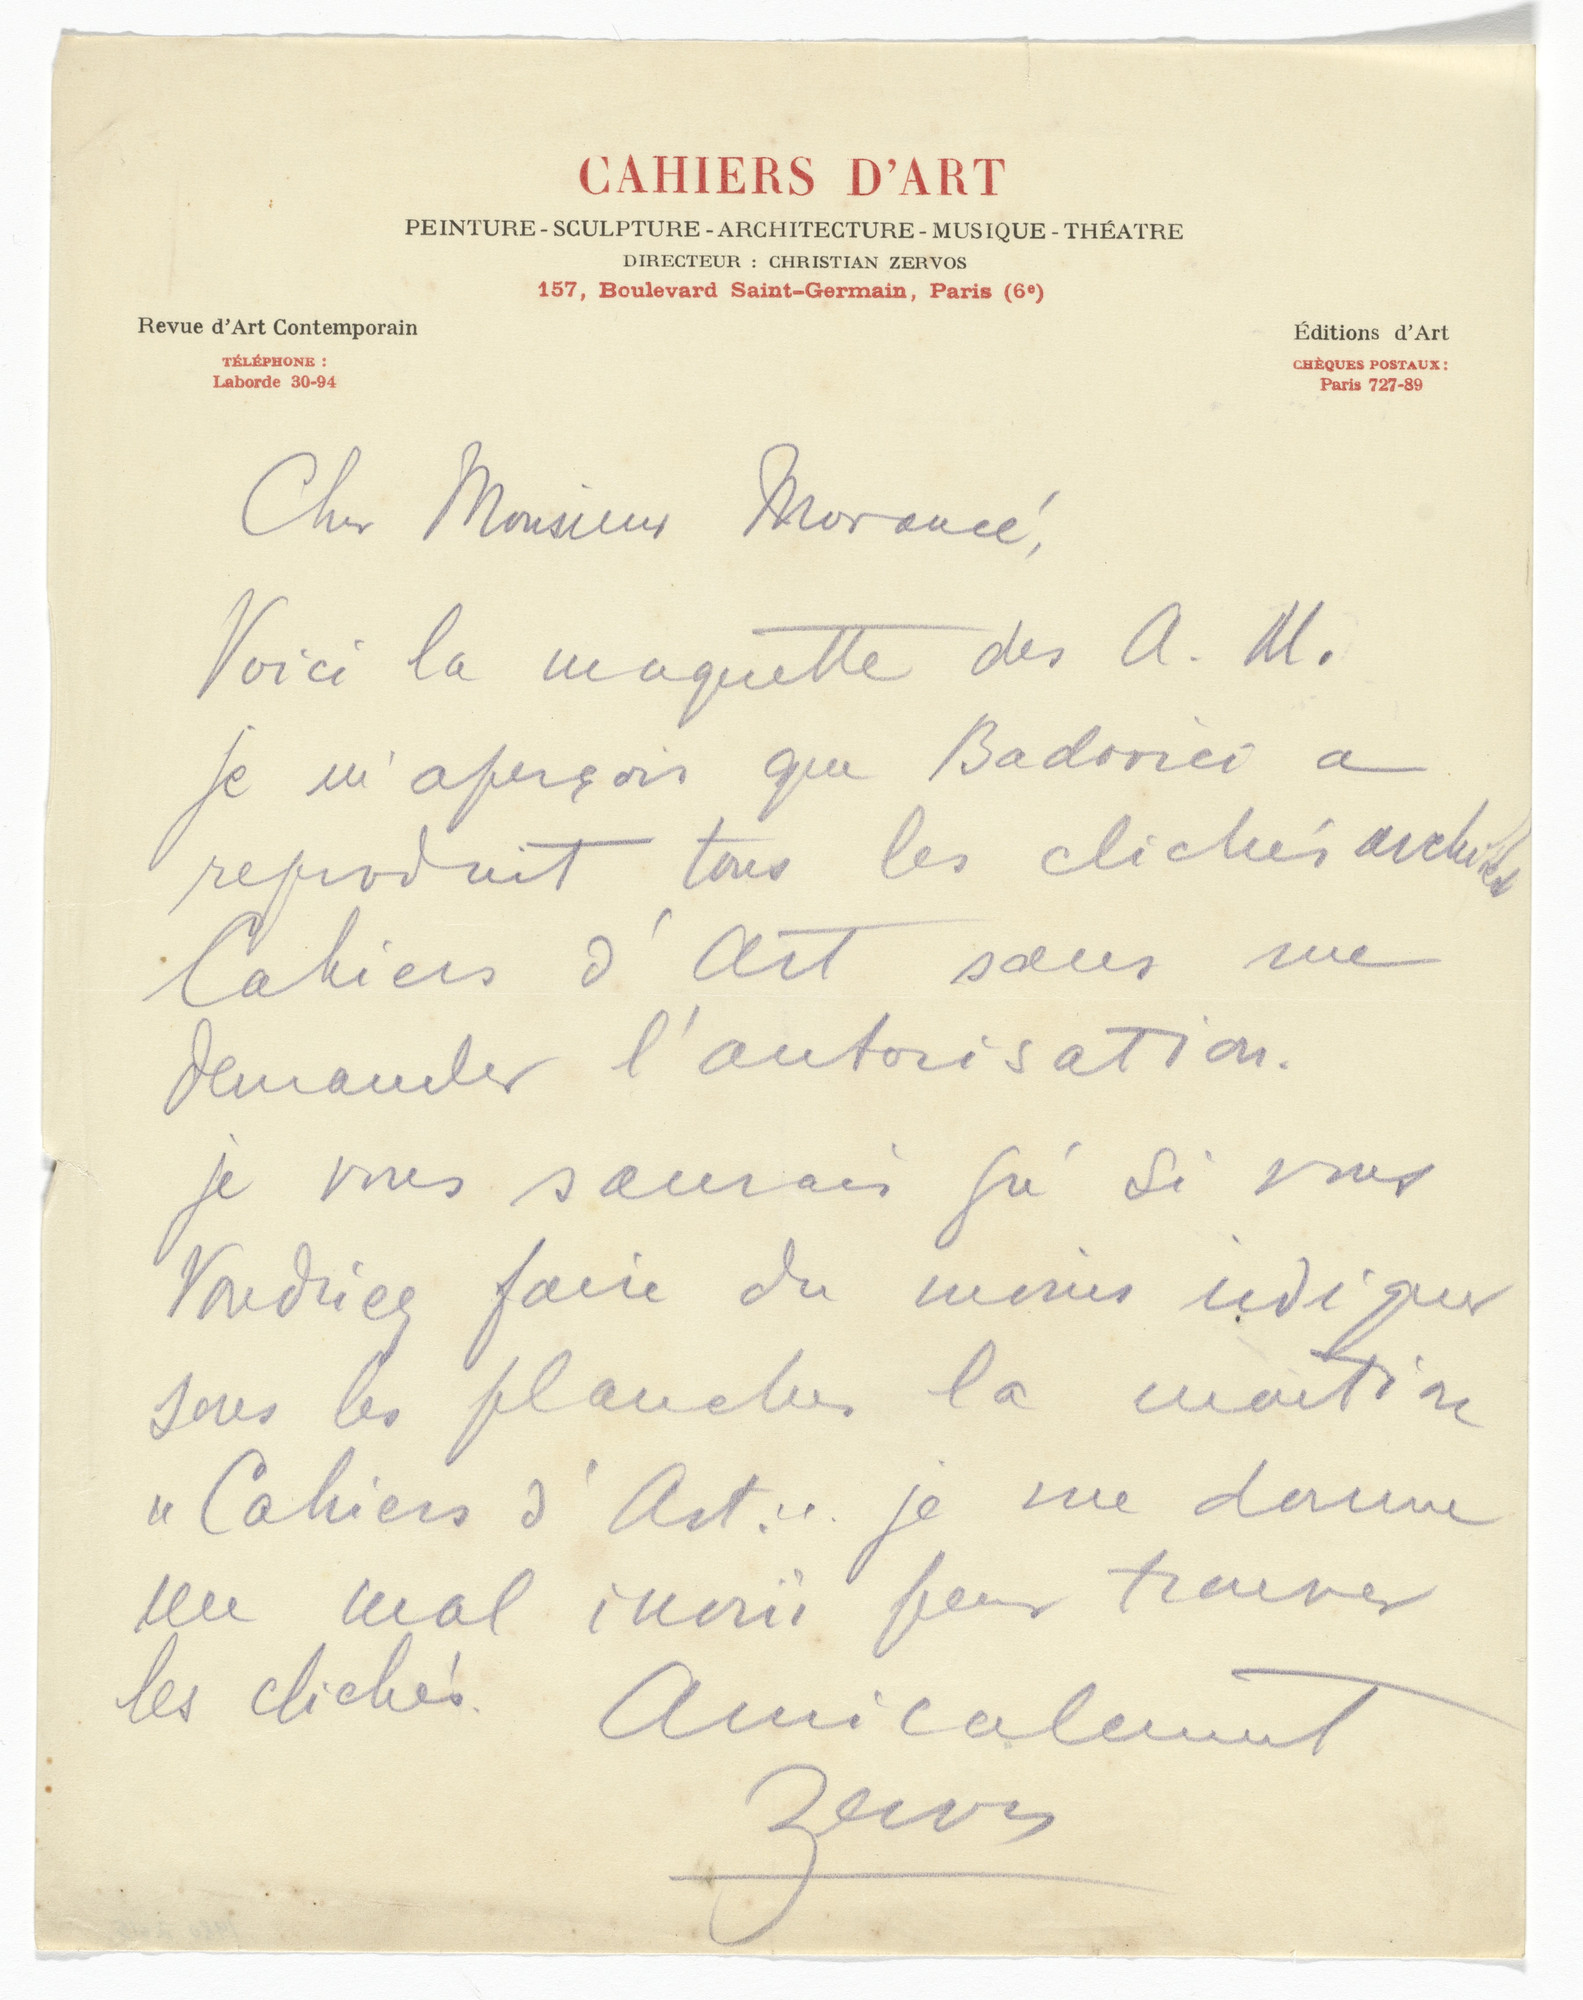 CAHIERS D'ART
PEINTURE - SCULPTURE - ARCHITECTURE - MUSIQUE - THÉATRE
DIRECTEUR : CHRISTIAN ZERVOS
157, Boulevard Saint-Germain, Paris (6e)
Revue d'Art Contemporain
TÉLÉPHONE :
Laborde 30-94
Éditions d'Art
CHÈQUES POSTAUX :
Paris 727-89
Cher Monsieur Morancé,
Voici la maquette des A. M.
je m'aperçois que Badovici a
reproduit tous les clichés
Cahiers d'Art sans me
demander l'autorisation.
je vous saurais gré si vous
Voudriez faire du moins indiquer
sous les planches la mention
"Cahiers d'Art". je me donne
un mal inouï pour trouver
les clichés.
Amicalement
Zervos